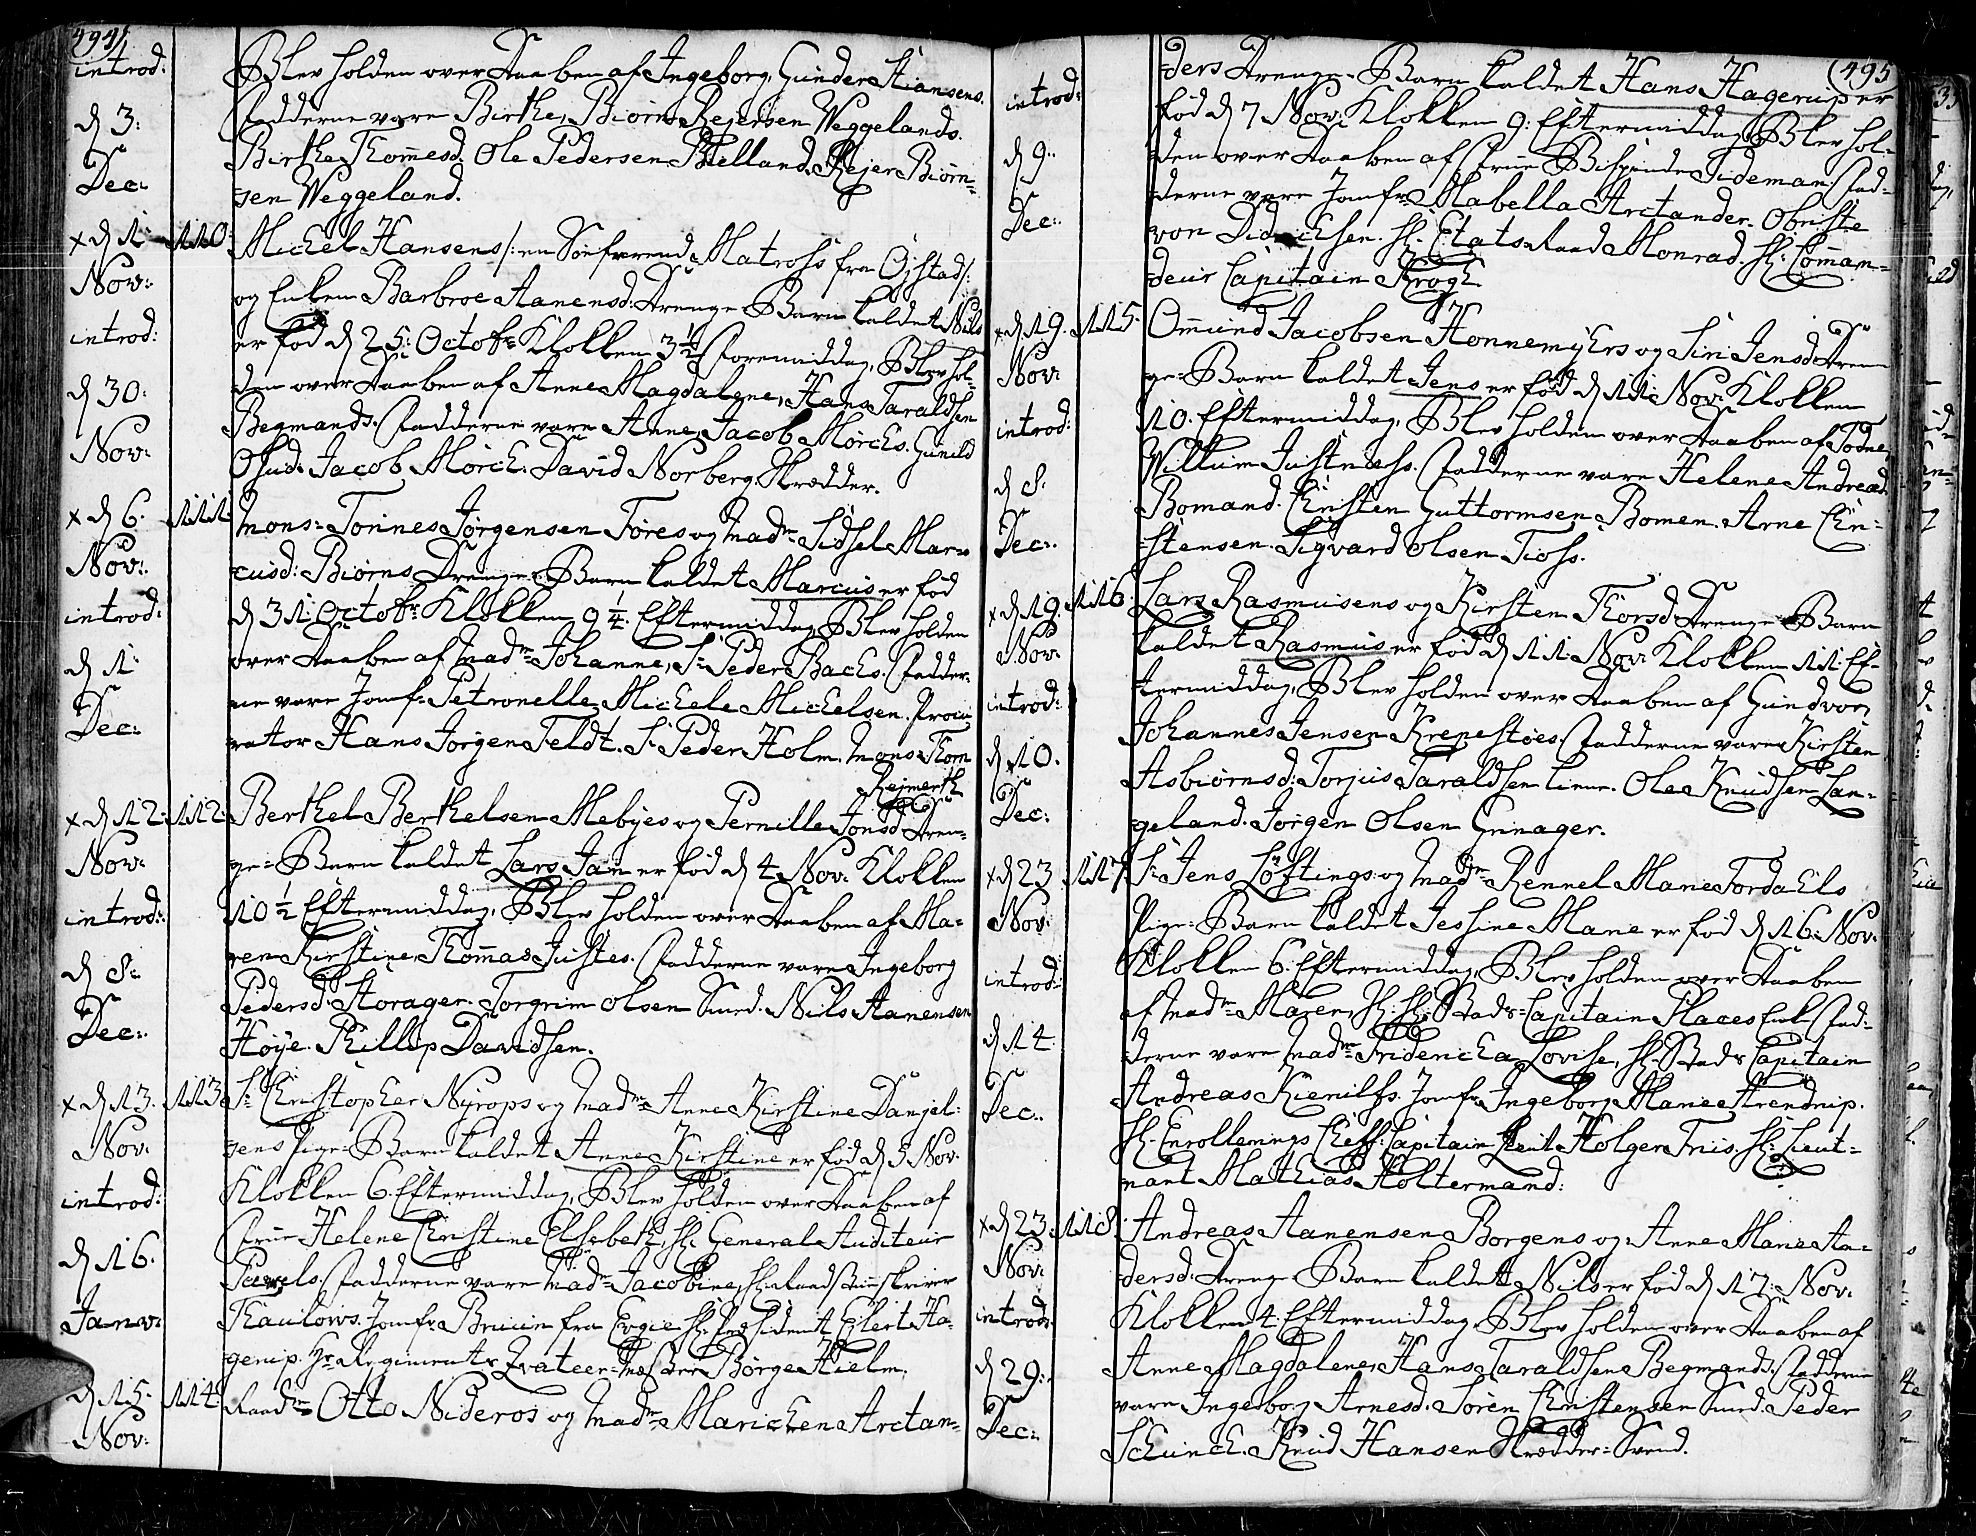 494
introd:
d 3:
Dec:
Blev holden over Daaben af Ingeborg, Gunder Stiansens.
Fadderne vare Birthe, Biørn Rejersen Weggelands.
Birthe Thomesd. Ole Pedersen Rejer Biørn-
sen Weggeland.
x d 11
Nov:
introd:
d 30:
Nov:
110:
Michel Hansens /: en Søefarend Matross fra Øjstad :/
og Enken Barbroe Aanensd: Drenge Barn kaldet Nils
er fød d 25: Octobr Klokken 3½ Formiddag, Blev hol-
den over Daaben af Anne Magdalene, Hans Taraldsen
Begmands. Fadderne vare Anne Jacob Mörchs. Gunild
Jacob Mörch. David Norberg, Skrædder.
x d 6.
Nov:
introd:
d 1:
Dec:
111:
Mons: Tönnes Jørgensen Føres og Madm Sidsel Mar-
cusd: Biørns Drenge Barn kaldet Marcus er fød
d 31 Octobr: Klokken 9 ¼. Eftermiddag, Blev holden
over Daaben af Madm Johanne, Sr Peder Bachs. Fadder-
ne vare Jomfr Petronelle Michele Michelsen. Procu-
rator Hans Jörgen Feldt. Sr Peder Holm. Mons Thom
Rejmerth
x d 12:
Nov:
introd:
d 8:
Dec:
112:
Berthel Berthelsen Mebyes og Pernille Jonsd Dren-
ge-Barn kaldet Lars Jan er fød d 4 Nov: Klokken
10 ½ Eftermiddag, Blev holden over Daaben af Ma-
ren Kirstine, Thommas Justes. Fadderne vare Ingeborg
Pedersd: Storager. Torgrim Olsen Smed. Nils Aanensen
Høye. Phillip Davidsen.
x d 13.
Nov.
introd:
d 16.
Janv:
113
Sr Christopher Nyrops og Madm Anne Kirstine Danjel:
sens Pige-Barn kaldet Anne Kirstine er fød d 5 Nov.
Klokken 6. Eftermiddag, Blev holden over Daaben af
Frue Helene Christine Elsebeth, Hr General-Auditeur
Pawels. Fadderne vare Madm Jacobine, Hr
Thaulows. Jomfr Bruun fra Evgie Hr Præsident Eilert Ha-
gerup. Hr Regiments Børge Hielm.
d 15.
Nov:
114
Raadm Otto Nideros og Madm Marichen Arctan-
495
introd:
d 9:
Dec:
ders Drenge-Barn kaldet Hans Hagerup er
fød d 7 Nov: Klokken 9. Eftermiddag, Blev hol-
den over Daaben af Frue Bispinde Tideman. Fad-
derne vare Jomfr Mabella Arctander. Obriste
von Hr Etats-Raad Monrad. Hr Comman-
deur Capitain Krogh.
x d 19.
Nov:
introd:
d 8:
Dec:
115.
Ommund Jacobsen Honnemyhrs og Siri Jensd Dren
ge-Barn kaldet Jens er fød d 11 Nov: Klokken
10. Eftermiddag, Blev holden over Daaben af Todne
Willum Justnæss. Fadderne vare Helene Andread
Bomand. Christen Guttormsen Bomen. Arne Chri-
stensen. Sigvard Olsen Tioss.
x d 19.
Nov
introd:
d 10.
Dec:
116.
Lars Rasmusens og Kirsten Thorsd Drenge Barn
kaldet Rasmus er fød d 11 Nov: Klokken 11. Ef-
termiddag, Blev holden over Daaben af Gundvor,
Johannes Jensen Krepestøes. Fadderne vare Kirsten
Asbiørnsd: Torjus Taraldsen Ole Knudsen Lan-
geland. Jørgen Olsen Grinager.
x d 23
Nov:
introd:
d 14
Dec.
117
Sr Jens Löftings og Madm Rennel Marie Tordahls
Pige-Barn kaldet Jessine Marie er fød d 16 Nov:
Klokken 6. Eftermiddag, Blev holden over Daaben
af Madm Maren, Hr Stads-Capitain Fad-
derne vare Madm Friderica Lovise, Hr Stads Capitain
Andreas Jomfr Ingeborg Marie Arendrup.
Hr Enrollerings Cheff Capitain Leut Holger Friis, Hr Lieut-
nant Mathias Holtermand:
x d 23.
Nov:
introd:
d 29:
Dec:
118:
Andreas Aanensen Borgens og Anne Marie An-
dersd. Drenge Barn kaldet Nils er fød d 17: Nov:
Klokken 4. Eftermiddag, Blev holden over Daaben af
Anne Magdalene, Hans Taraldsen Begmands. Fadderne
vare Ingeborg Arnesd. Sören Christensen Smed. Peder
Schunch. Knud Hansen Skrædder-Svend.